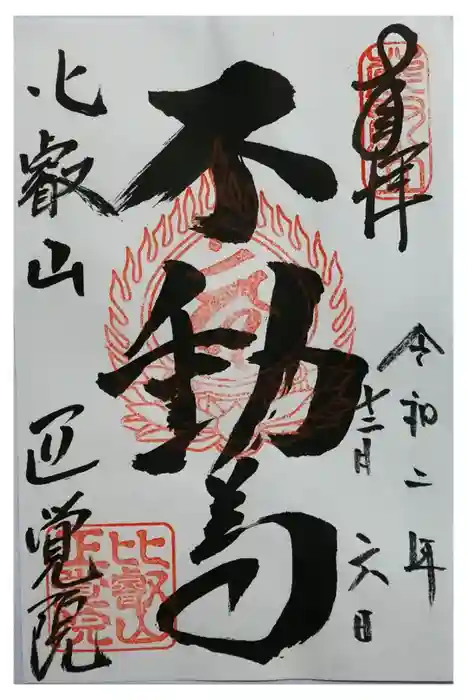 奉拝
令和二年
十二月 六日
不動尊
比叡山 正覚院
比叡山
正覚院